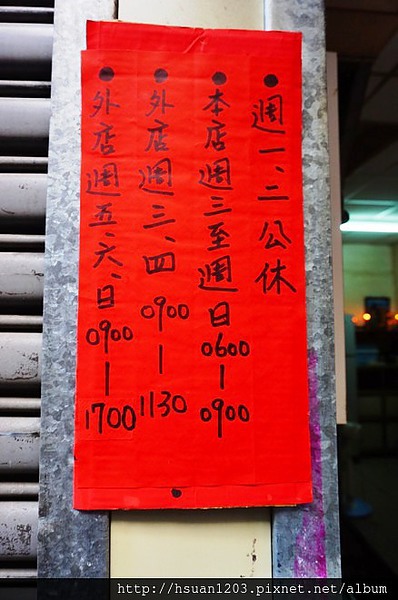 ●週一、二公休
●本店週三至週日0600–0900
●外店週三、四0900–1130
●外店週五、六、日0900–1700
http://hsuan1203.pixnet.net/album